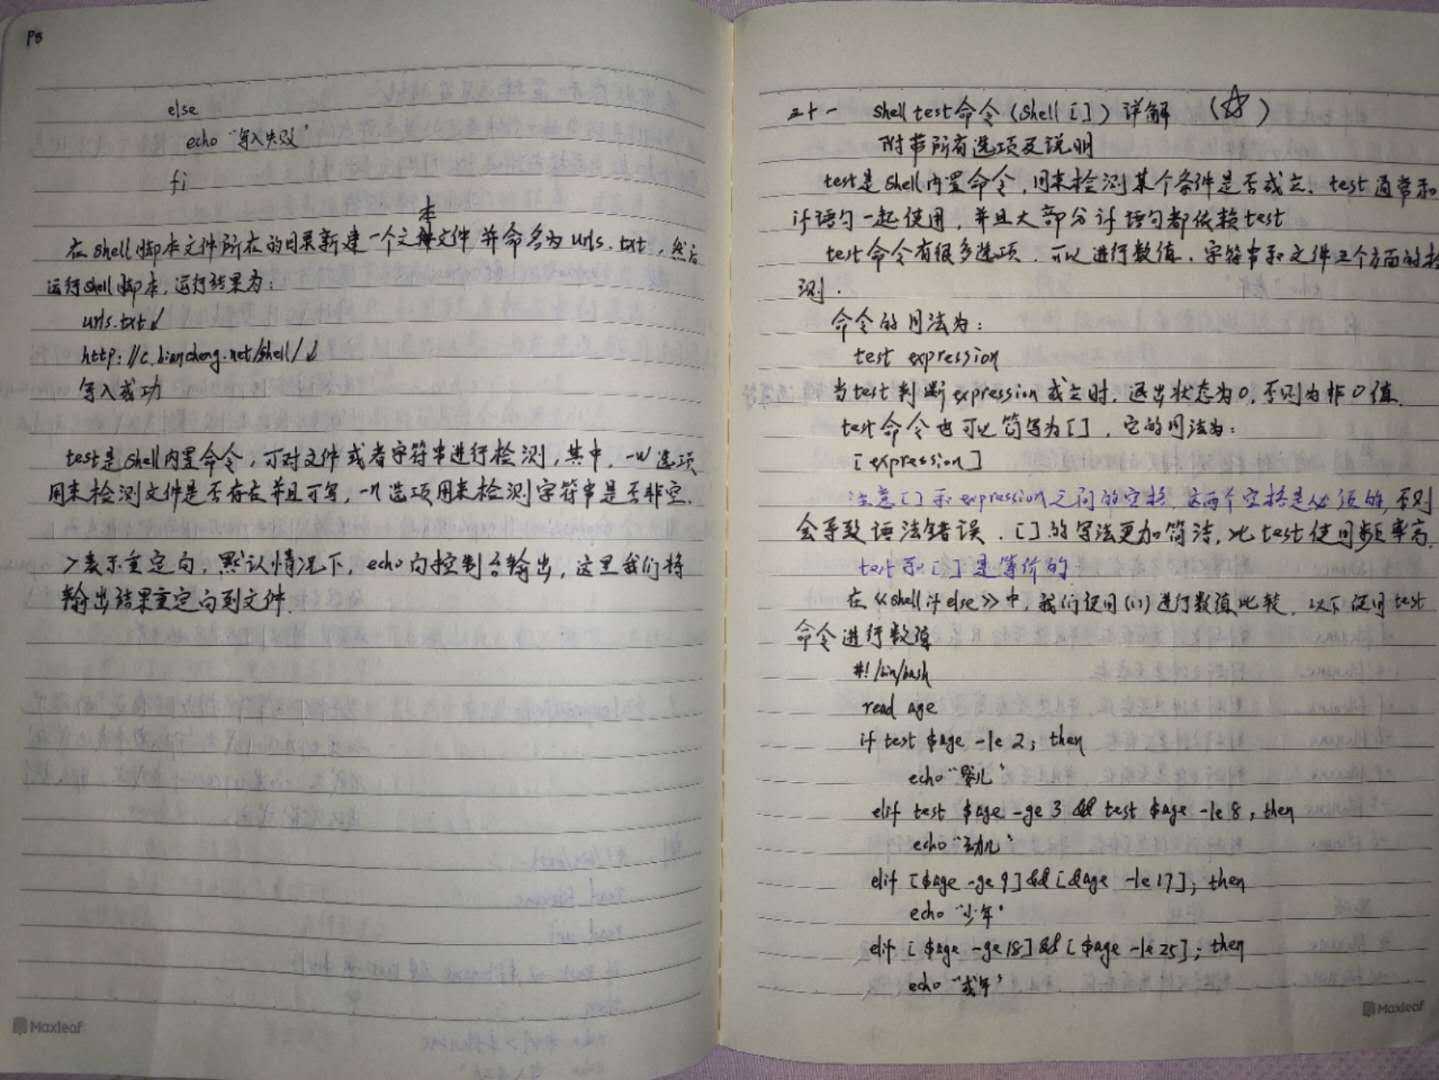 P8
else
echo "写入失败"
fi
本
在Shell脚本文件所在的目录新建一个文文件并命名为urls.txt，然后
运行Shell脚本，运行结果为：
urls.txt↙
http://c.biancheng.net/shell/↙
写入成功
test是Shell内置命令，可对文件或者字符串进行检测，其中，-w选项
用来检测文件是否存在并且可写，-n选项用来检测字符串是否非空．
>表示重定向，默认情况下，echo向控制台输出，这里我们将
输出结果重定向到文件．
Maxleaf
二十一 Shell test命令（Shell []）详解 （☆）
附带所有选项及说明
test是Shell内置命令，用来检测某个条件是否成立．test通常和
if语句一起使用，并且大部分if语句都依赖test
test命令有很多选项．可以进行数值．字符串和文件三个方面的检
测．
命令的用法为：
test expression
当test判断expression成立时，退出状态为0，否则为非0值．
test命令也可以简写为[]，它的用法为：
[expression]
注意[]和expression之间的空格，这两个空格是必须的，否则
会导致语法错误．[]的写法更加简洁，比test使用频率高．
test和[]是等价的
在《Shell if else》中，我们使用(())进行数值比较．以下使用test
命令进行数值
#!/bin/bash
read age
if test $age -le 2; then
echo "婴儿"
elif test $age -ge 3 && test $age -le 8; then
echo "幼儿"
elif [$age -ge 9]&&[&age -le 17]; then
echo "少年"
elif [ $age -ge 18]&&[ $age -le 25]; then
echo "成年"
Maxleaf